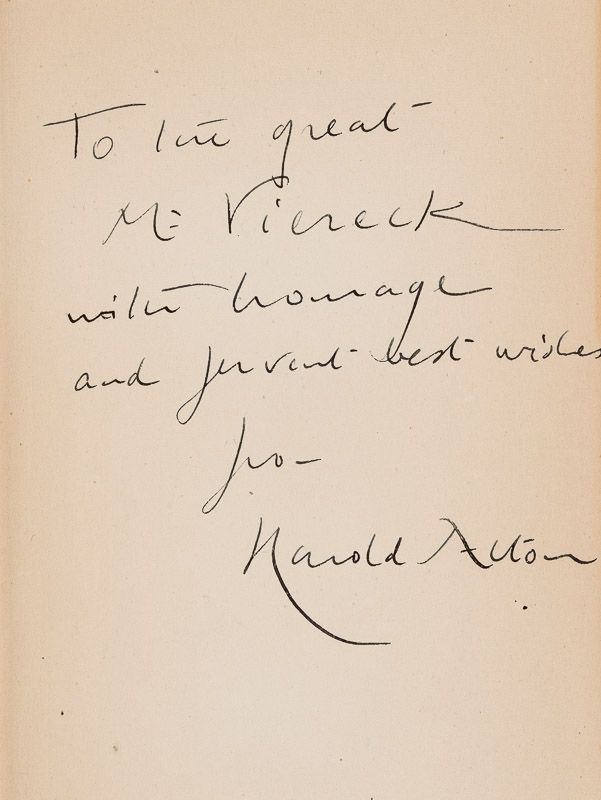 To the great
Mr Viereck
with homage
and fervent best wishes
from
Harold Acton